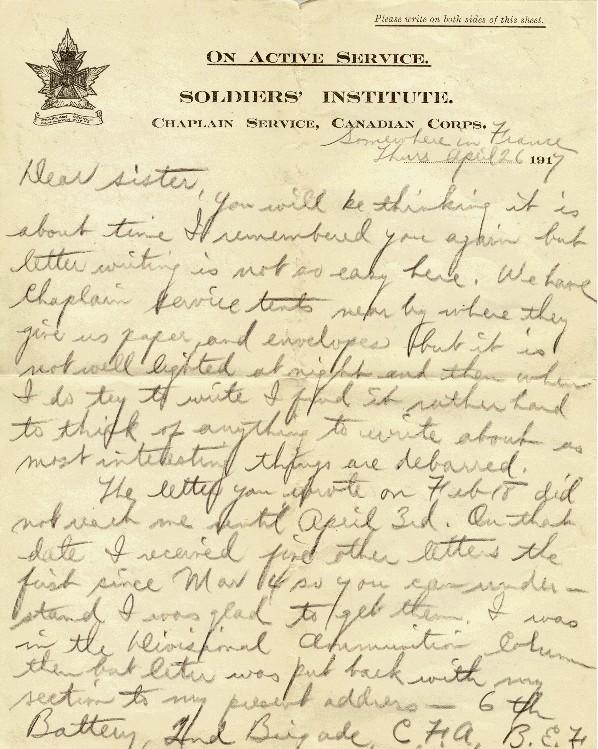 Please write on both sides of this sheet.
ON ACTIVE SERVICE.
SOLDIERS' INSTITUTE.
CHAPLAIN SERVICE, CANADIAN CORPS.
Somewhere in France
Thurs April 26 1917
Dear sister,
You will be thinking it is
about time I remembered you again but
letter writing is not so easy here. We have
Chaplain Service tents near by where they
give us paper and envelopes but it is
not well lighted at night and then when
I do try to write I find it rather hard
to think of anything to write about as
most interesting things are debarred.
The letter you wrote on Feb 18 did
not reach me until April 3rd. On that
date I received five other letters the
first since Mar 4 so you can under-
stand I was glad to get them. I was
in the Divisional Ammunition Column
then but later was put back with my
section to my present address - 6th
Battery, 2nd Brigade, C.F.A., B.E.F